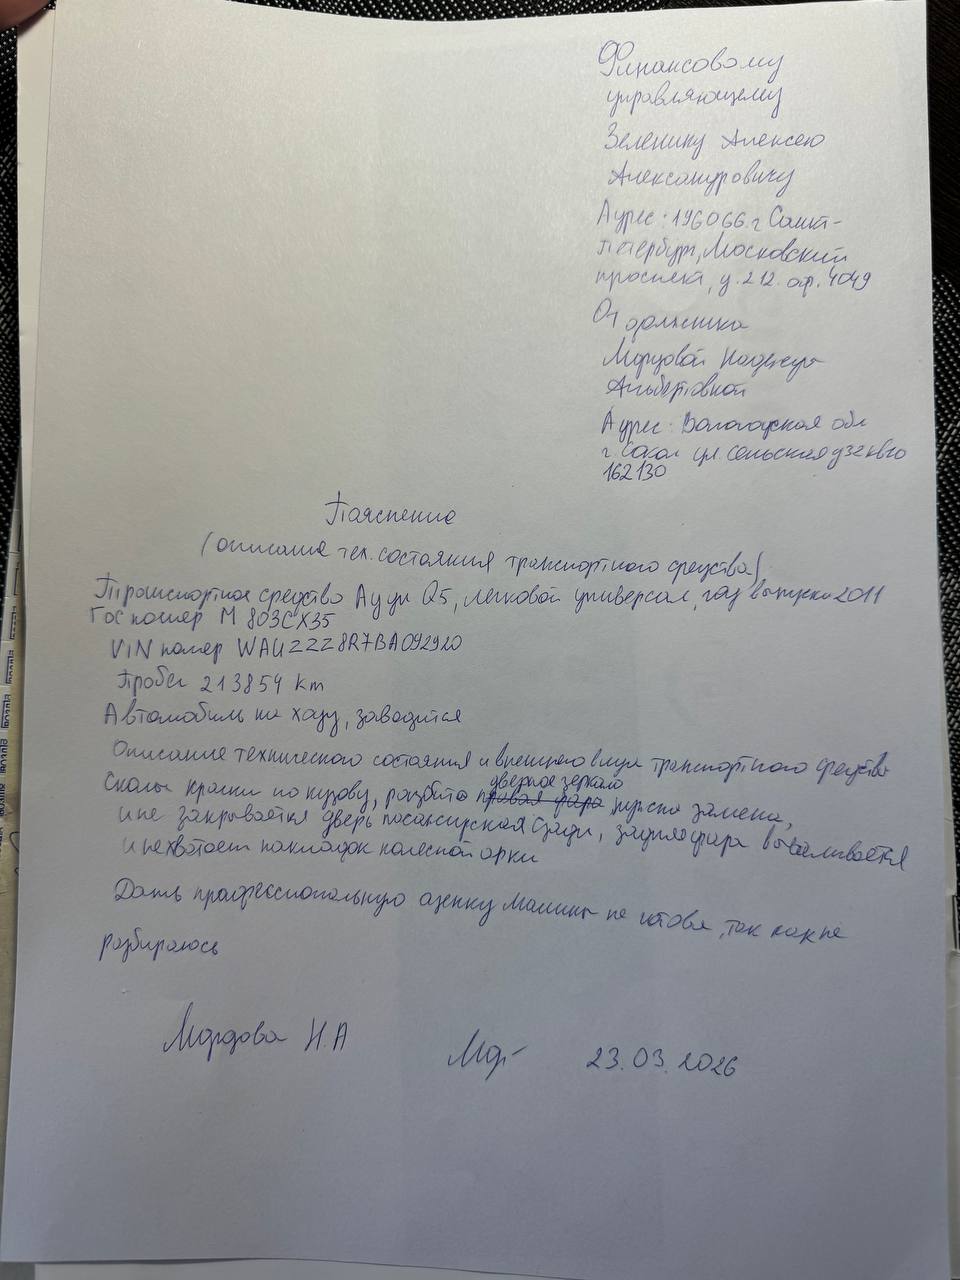 Финансовому
управляющему
Зеленину Алексею
Александровичу
Адрес: 196066. г Санкт-
Петербург, Московский
проспект, д. 212. оф. 4049
От должника
Мордовой Надежды
Альбертовной
Адрес: Вологодская обл
г. Сокол ул. Сельская д32 кв10
162130
Пояснение
(описание тех. состояния транспортного средства)
Транспортное средство Ауди Q5, легковой универсал, год выпуска 2011
Гос номер М 803СХ35
VIN номер WAUZZZ8R7BA092920
Пробег 213854 km
Автомобиль на ходу, заводится
Описание технического состояния и внешнего вида транспортного средства
дверное зеркало
Сколы краски по кузову, разбито правая фара нужна замена,
и не закрывается дверь пасажирская сзади, задняя фара вываливается
и нехватает накладок колесной арки
Дать профессиональную оценку машины не готова, так как не
разбираюсь
Мордова Н.А Мор 23.03.2026